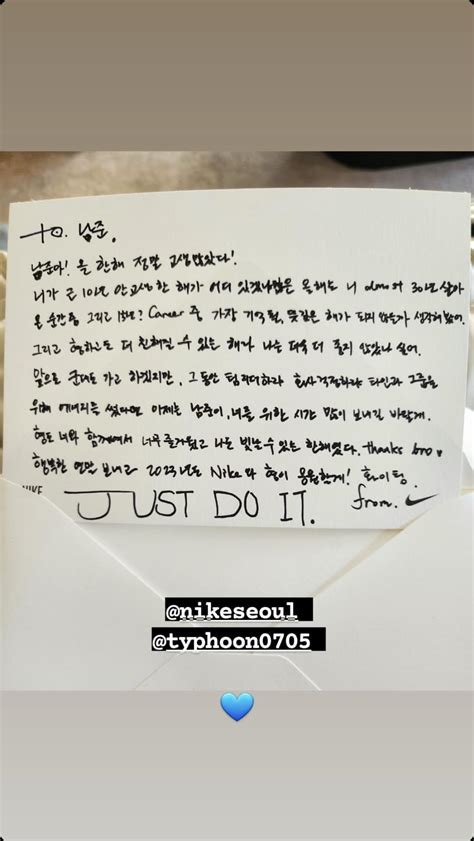 To. 남준.
남준아! 올 한해 정말 고생많았다!
니가 근 10년 안 고생한 해가 어디 있겠냐많은 올해도 니 almost 30년 살아
온 순간중 그리고 너의? Career 중 가장 기억될, 뜻깊은 해가 되지 않을가 생각해봤어.
그리고 형하고도 더 친해질 수 있는 해라 나는 더욱 더 좋지 않았나 싶어.
앞으로 군대도 가고 하겠지만, 그동안 팀 리더하랴 회사걱정하랴 타인과 그룹을
위해 에너지를 썼다면 이제는 남준이, 너를 위한 시간 많이 보내길 바랄게.
형도 너와 함께여서 너무 즐거웠고 나는 빛날수 있는 한해였다. thanks bro
행복한 연말 보내고 2023년도 Nike와 형이 응원할게! 화이팅
NIKE JUST DO IT. from.
@nikeseoul
@typhoon0705